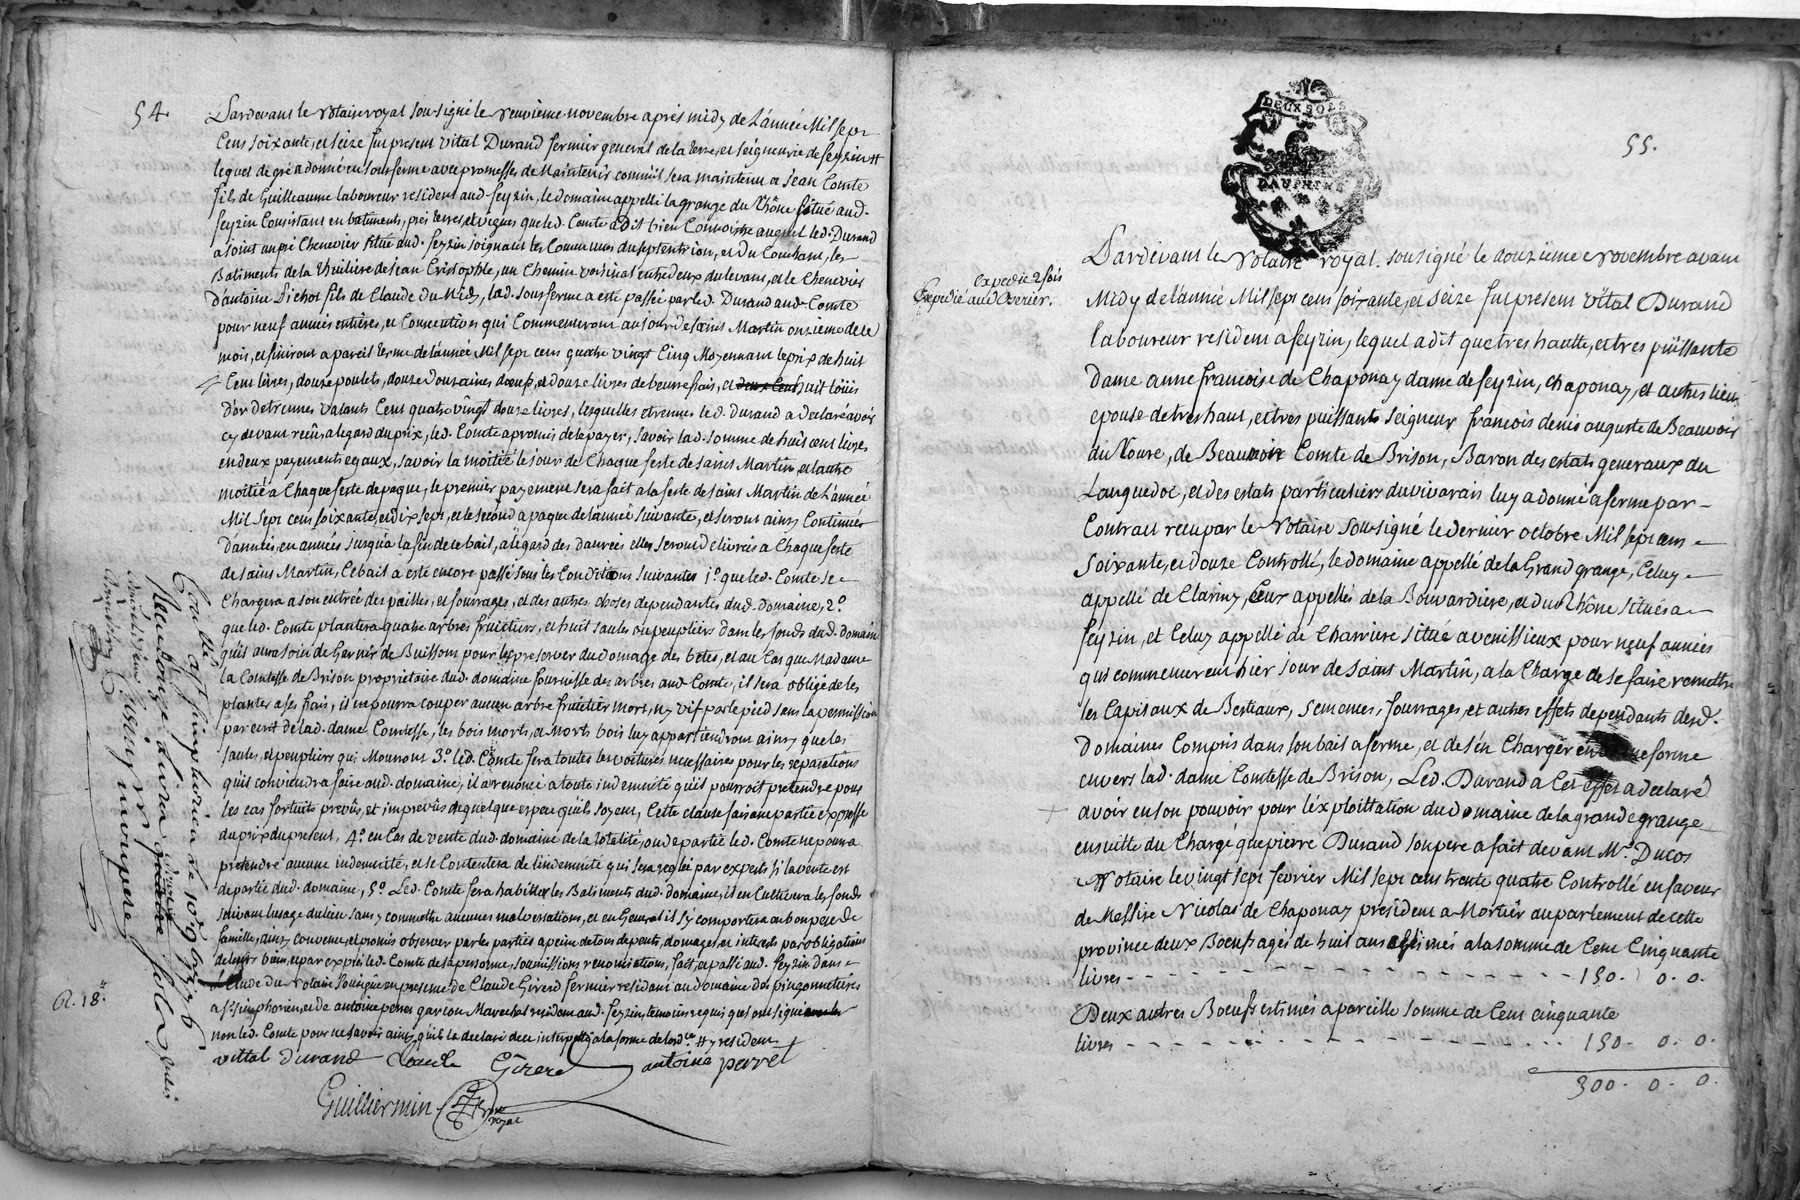 54.
Pardevant le Notaire royal sousigné le neuvième novembre après midy de L'année Mil sept
Cens soixante, et seize fut present vital Durand fermier general de la terre, et seigneurie de feyzin #
lequel de gré a donné en sous ferme avec promesses de maintenir comm'il sera maintenu a jean Comte
fils de Guilleaume laboureur resident aud. feyzin, le domaine appellé la grange du Rhône situé aud.
feyzin Consistant en batiments, prés terres, et vignes que led. Comte a dit bien Connoitre auquel led. Durand
a joint un pré Chenevier situé aud. feyzin joignant les Communes du septentrion, et du Couchant, les
Batiments de la Thuilière de jean Cristophle, un Chemin voisinal entredeux du levant, et le Chenevier
d'antoine Pichot fils de Claude du Midy, lad. sous ferme a esté passée par led. Durand aud. Comte
pour neuf années entières, et Consecutives qui Commenceront au jour de saint Martin onzieme de ce
mois, et finiront a pareil terme de l'année Mil sept cens quatre vingt Cinq Moyennant le prix de huit
Cent livres, douze poulets, douze douzaines d'oeufs, et douze livres de beurre frais, et deux Cent huit loüis
d'or detrennes valants Cent quatre vingt douze livres, lesquelles etrennes led. Durand a declaré avoir
cy devant reçu, a legard du prix, led. Comte a promis de le payer, savoir lad. somme de huit cent livres
en deux payements egaux, savoir la moitiée le jour de Chaque feste de saint Martin, et lautre
moitié a Chaque feste de paque, le premier payement sera fait a la feste de saint Martin de L'année
Mil sept cens soixante, et dix sept, et le second a paque de l'année suivante, et seront ainsy Continués
d'années, en années jusqu'a la fin de ce bail, a légard des danrées elles seront delivrées a Chaque feste
de saint Martin, Ce bail a esté encore passé sous les Conditions suivantes 1.° que led. Comte se
Chargera a son entrée des pailles, et fourrages, et des autres choses dependantes dud. domaine, 2.°
que led. Comte plantera quatre arbres fruitiers, et huit saules ou peupliers dans les fonds dud. domaine
qu'il aura soin de Garnir de Buissons pour les preserver du domage des betes, et au Cas que Madame
la Comtesse de Brison proprietaire dud. domaine fournisse des arbres aud. Comte, il sera obligé de les
planter a ses frais, il ne pourra couper aucun arbre fruitier mort, ny vif par le pied sans la permission
par ecrit de lad. dame Comtesse, les bois morts, et Morts bois luy appartiendront ainsy que les
saules, et peupliers qui Mourront 3.° led. Comte fera toutes les voitures necessaires pour les reparations
qu'il conviendra faire aud. domaine, il a renoncé a toute indemnité qu'il pourroit pretendre pour
les cas fortuits prevûs, et imprevûs de quelque espece qu'ils soyent, Cette clause faisant partie expresse
du prix du present, 4.° en Cas de vente dud. domaine de la totalité, ou de partie led. Comte ne pourra
pretendre aucune indemnité, et se Contentera de lindemnité qui sera reglée par experts si la vente est
de partie dud. domaine, 5.° Led. Comte fera habiller les Batiments dud. domaine, il en Cultivera les fonds
suivant lusage du lieu sans y commettre aucunes malversations, et en General il s'y comportera au bon pere de
famille, ainsy convenu, et promis observer par les parties a peine de tous depents, domages, et interets par obligations
de leurs biens, et par exprés led. Comte de sa personne, soumissions renonciations, fait, et passé aud. feyzin dans
L'étude du Notaire sousigné en presence de Claude Girerd fermier residant au domaine des pingonnetieres
a st simphorien, et de antoine perret garçon Marechal residant aud. feyzin, temoins requis qui ont signé
non led. Comte pour ne savoir ainsy qu'il la declaré de ce interpellé a la forme de lord.ce # y resident
vittal durand Claude Girerd antoine perret
Guilliermin no.re royal
R. 18.s
Con.llé a st simphorien le 10.e 9.bre 1776
55.
DEUX SOLS
DAUPHINÉ
expedié 2 fois
Expedié aud. Verier.
Pardevant le Notaire royal sousigné le douzieme novembre avant
Midy de l'année Mil sept cens soixante, et seize fut present vital Durand
laboureur resident a feyzin, lequel a dit que tres haute, et tres püissante
Dame anne francoise de Chaponay dame de feyzin, chaponay, et autres lieux
epouse de tres haut, et tres puissant seigneur francois denis auguste de Beauvoir
du Roure, de Beauvoir Comte de Brison, Baron des estats generaux du
Languedoc, et des estats particuliers du vivarais luy a donné a ferme par
Contrat reçu par le Notaire sousigné le dernier octobre Mil sept cens
soixante, et douze Controllé, le domaine appellé de la Grand grange, Celuy
appellé de Clariny, Ceux appellés de la Bouvardiere, et du Rhône situés a
feyzin, et Celuy appellé de Charriere situé a venissieux pour neuf années
qui commencerent hier jour de saint Martin, a la Charge de se faire remettre
les Capitaux de Bestiaux, semences, fourrages, et autres effets dependants desd.
domaines Compris dans son bail a ferme, et de s'en Charger en bonne forme
envers lad. dame Comtesse de Brison, Led. Durand a Cet effet a declaré
avoir en son pouvoir pour l'exploittation du Domaine de la grande grange
ensuitte du Chargé que pierre Durand son pere a fait devant M.e Ducos
Notaire le vingt sept fevrier Mil sept cens trente quatre Controllé en faveur
de Messire Nicolas de Chaponay president a Mortier au parlement de cette
province deux Boeufs agés de huit ans estimés a la somme de Cent Cinquante
livres - - - - - - - - - - - - - - - 150. 0. 0.
Deux autres Boeufs estimés a pareille somme de Cent cinquante
livres - - - - - - - - - - - - - - - 150. 0. 0.
300. 0. 0.